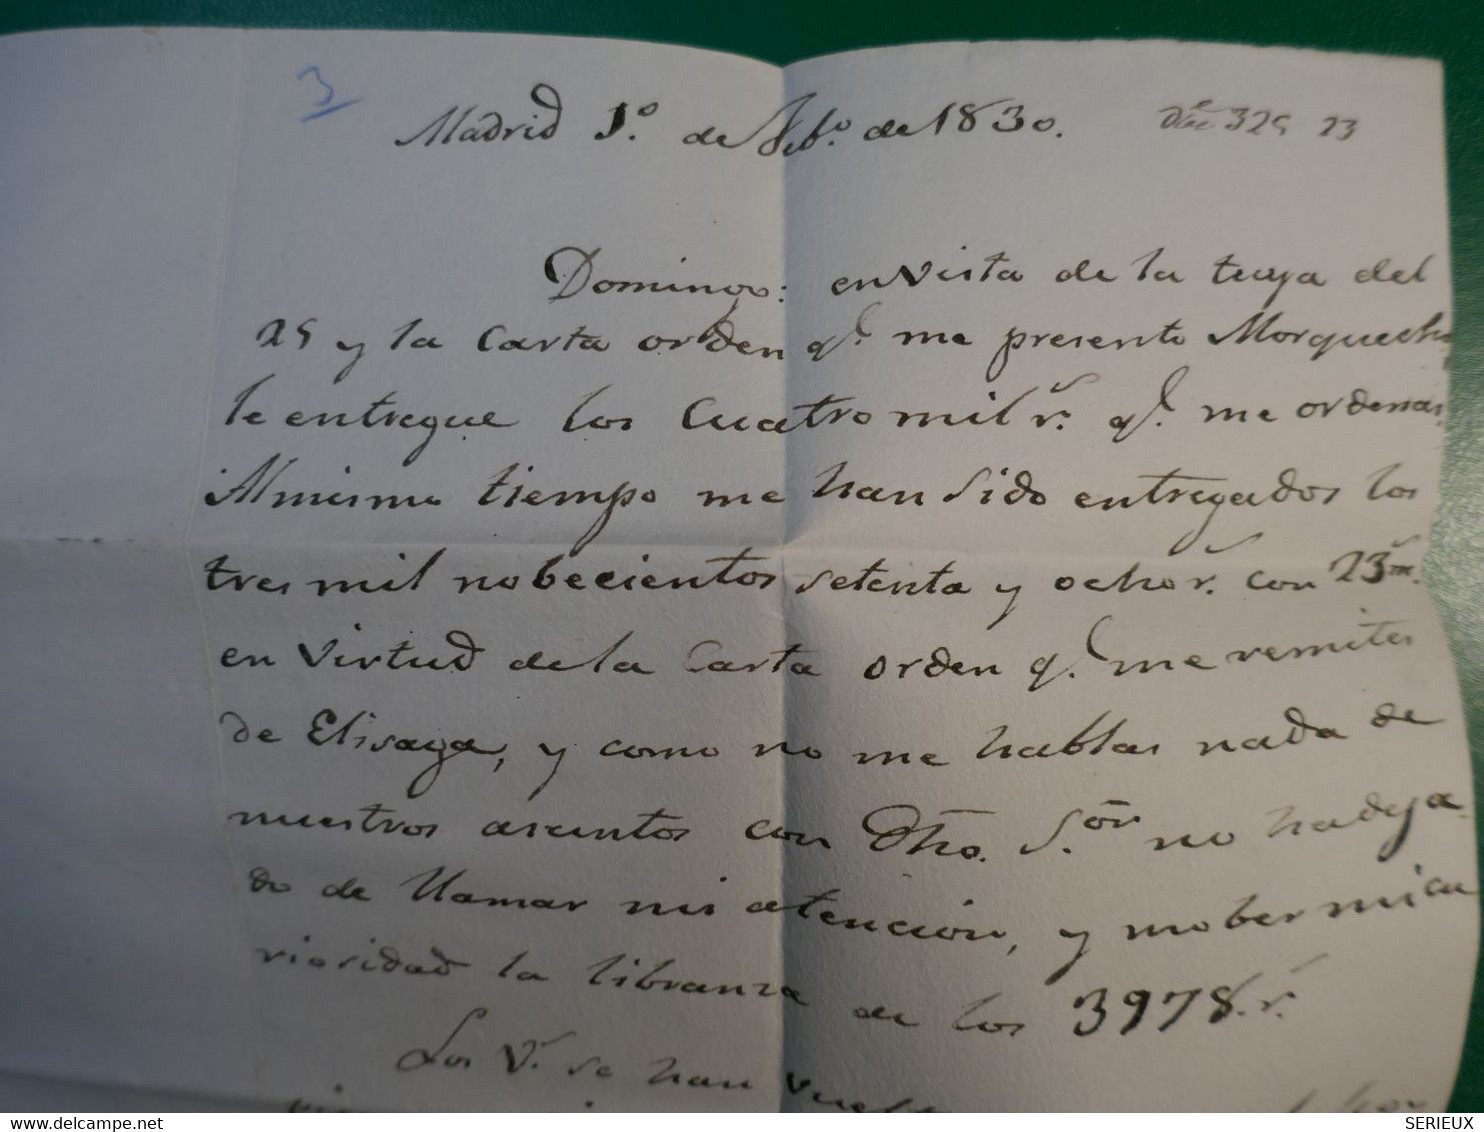 3
Madrid 1.º de Feb.º de 1830. 325 23
Domingo: en vista de la tuya del
25 y la Carta orden q.e me presento Morquecho
le entregue los Cuatro mil r.s q.e me ordenas.
Al mismo tiempo me han sido entregados los
tres mil nobecientos setenta y ocho r.s con 23 m.s
en virtud de la Carta orden q.e me remites
de Elisaga, y como no me hablas nada de
nuestros asuntos con Dho. S.or no ha deja
do de llamar mi atencion, y mober mi cu
rioridad la libranza de los 3978. r.s
Los V.s se han
SERIEUX